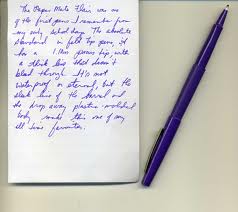 The Paper Mate Flair was one
of the first pens I remember from
my early school days. The absolute
standard in felt tip pens, it
is a 1.1mm porous tip with
a thick line that doesn't
bleed through. It's not
waterproof or eternal, but the
sleek line of the barrel and
the drop away plastic-molded
body make this one of my
all time favorites.